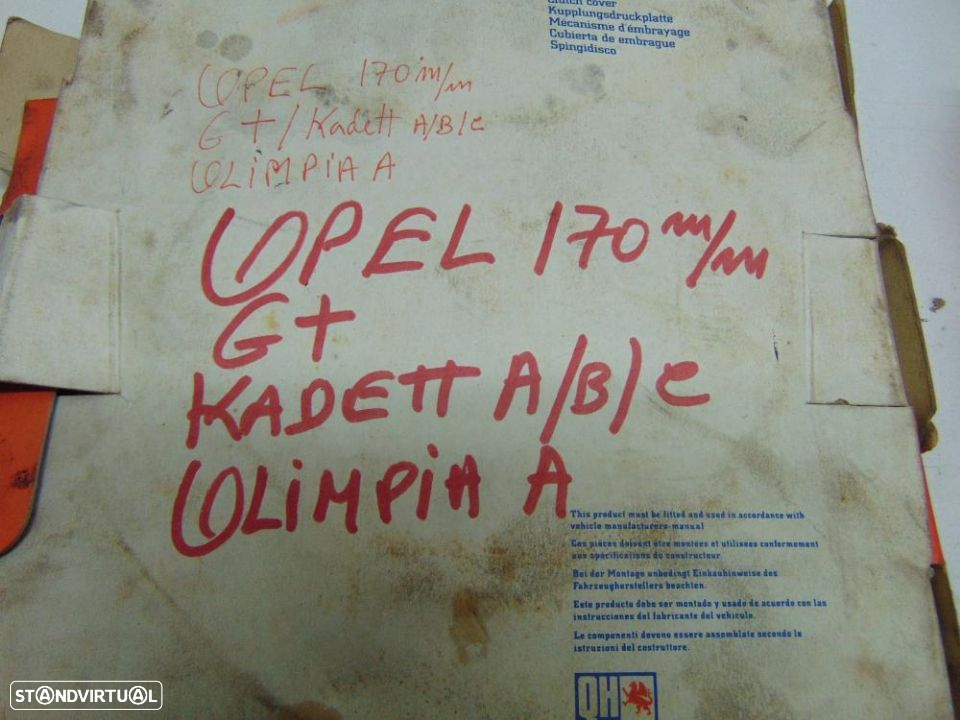 Clutch cover
Kupplungsdruckplatte
Mécanisme d'émbrayage
Cubierta de embrague
Spingidisco
OPEL 170 m/m
GT/Kadett A/B/C
OLiMPiA A
OPEL 170 m/m
GT
KADETT A/B/C
OLiMPiA A
This product must be fitted and used in accordance with
vehicle manufacturers-manual
Ces pièces doivent être montées et utilisées conformement
aux spécifications du constructeur.
Bei der Montage unbedingt Einbauhinweise des
Fahrzeugherstellers beachten.
Este producto debe ser montado y usado de acuerdo con las
instrucciones del fabricante del vehículo.
Le componenti devono essere assemblate secondo le
istruzioni del costruttore.
QH
STANDVIRTUAL